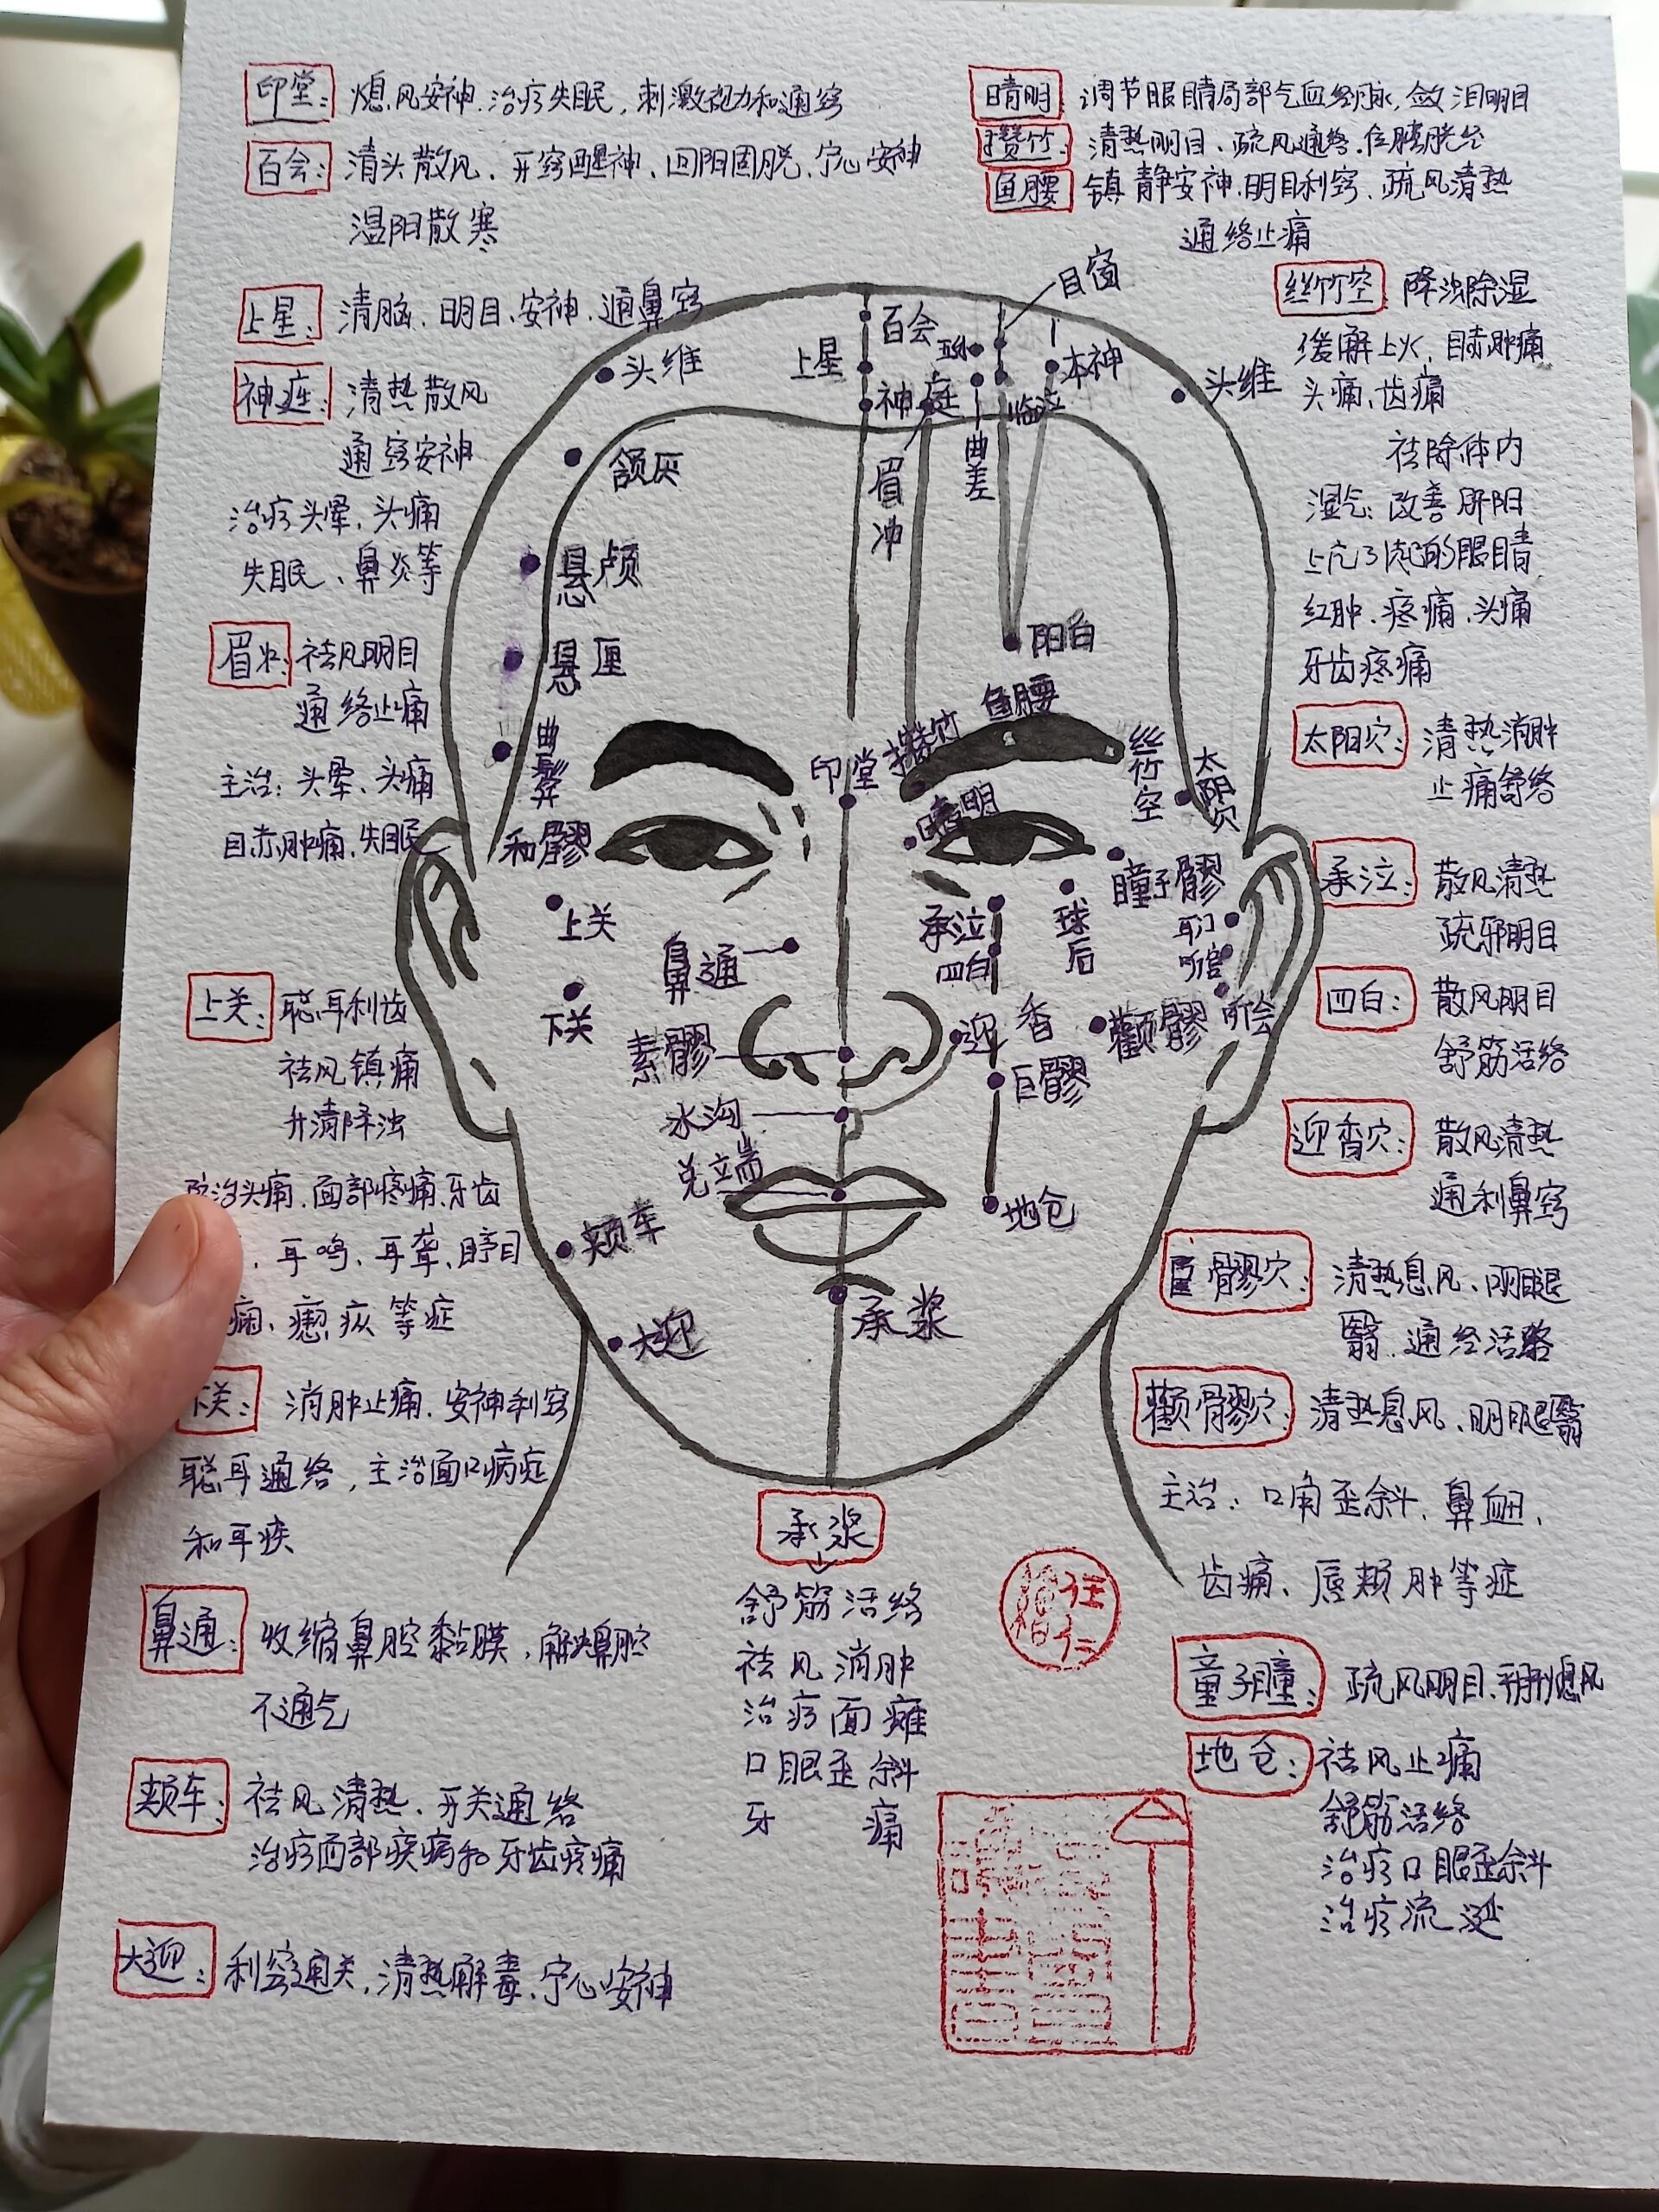 印堂：熄风安神.治疗失眠，刺激视力和通窍
百会：清头散风、开窍醒神、回阳固脱、宁心安神
温阳散寒
上星：清脑、明目、安神、通鼻窍
神庭：清热散风
通窍安神
治疗头晕、头痛
失眠、鼻炎等
眉冲：祛风明目
通络止痛
主治：头晕、头痛
目赤肿痛、失眠
上关：聪耳利齿
祛风镇痛
升清降浊
防治头痛、面部疼痛、牙齿
、耳鸣、耳聋、
痫、瘛疭等症
下关：消肿止痛、安神利窍
聪耳通络，主治面口病症
和耳疾
鼻通：收缩鼻腔黏膜，解决鼻腔
不通气
颊车：祛风清热、开关通络
治疗面部疾病和牙齿疼痛
大迎：利窍通关，清热解毒、宁心安神
睛明：调节眼睛局部气血经脉，敛泪明目
攒竹：清热明目、疏风通络、膀胱经
鱼腰 镇静安神、明目利窍、疏风清热
通络止痛
丝竹空：降浊除湿
缓解上火、目赤肿痛
头痛、齿痛
祛除体内
湿气：改善肝阳
上亢引起的眼睛
红肿、疼痛、头痛
牙齿疼痛
太阳穴：清热消肿
止痛舒络
承泣：散风清热
疏邪明目
四白：散风明目
舒筋活络
迎香穴：散风清热
通利鼻窍
巨髎穴：清热息风、明眼
翳、通经活络
颧髎穴：清热息风、明眼翳
主治：口角歪斜、鼻衄、
齿痛、唇颊肿等症
童子瞳：疏风明目、平肝熄风
地仓：祛风止痛
舒筋活络
治疗口眼歪斜
治疗流涎
目窗
百会
五处
上星
本神
头维
头维
神庭
临泣
眉冲
曲差
颔厌
悬颅
悬厘
阳白
鱼腰
攒竹
印堂
丝竹空
太阳穴
曲鬓
和髎
睛明
瞳子髎
上关
承泣
球后
耳门
四白
听宫
鼻通
下关
听会
迎香
颧髎
素髎
巨髎
水沟
兑端
地仓
颊车
大迎
承浆
承浆
舒筋活络
祛风消肿
治疗面瘫
口眼歪斜
牙痛